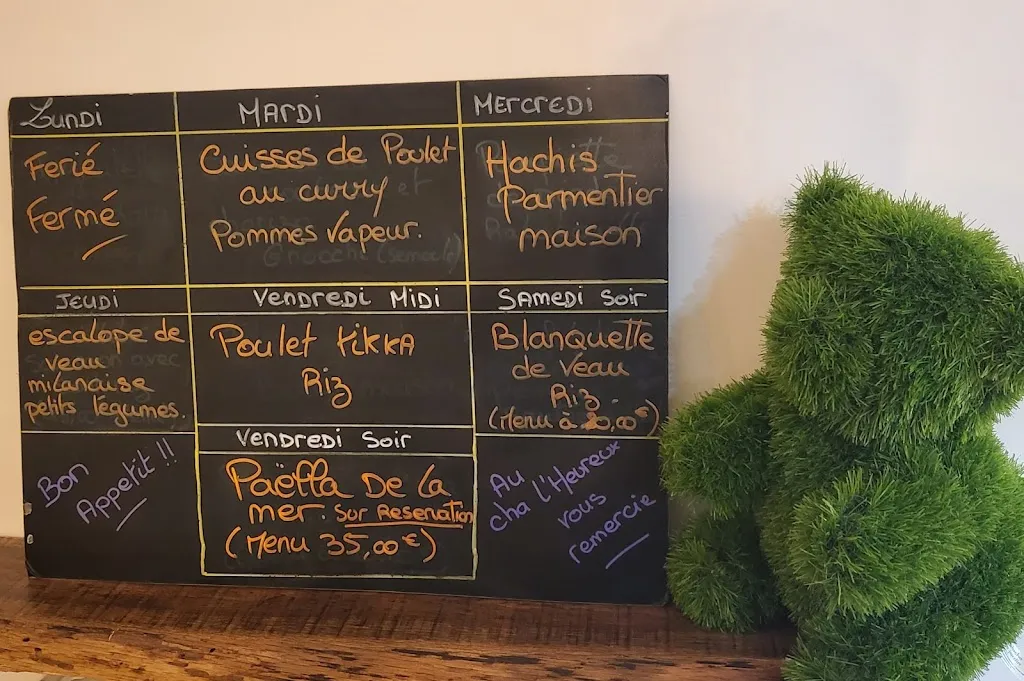 Lundi
Ferié
Fermé
MARDI
Cuisses de Poulet
au curry
Pommes vapeur.
MERCREDI
Hachis
Parmentier
maison
JEUDI
escalope de
veau
milanaise
petits légumes.
VENDREDI MIDI
Poulet tikka
Riz
SAMEDI Soir
Blanquette
de veau
Riz
(Menu à 20,00€)
VENDREDI Soir
Paëlla De la
mer. Sur Reservation
(Menu 35,00€)
Bon
Appetit !!
Au
cha l'Heureux
vous
remercie